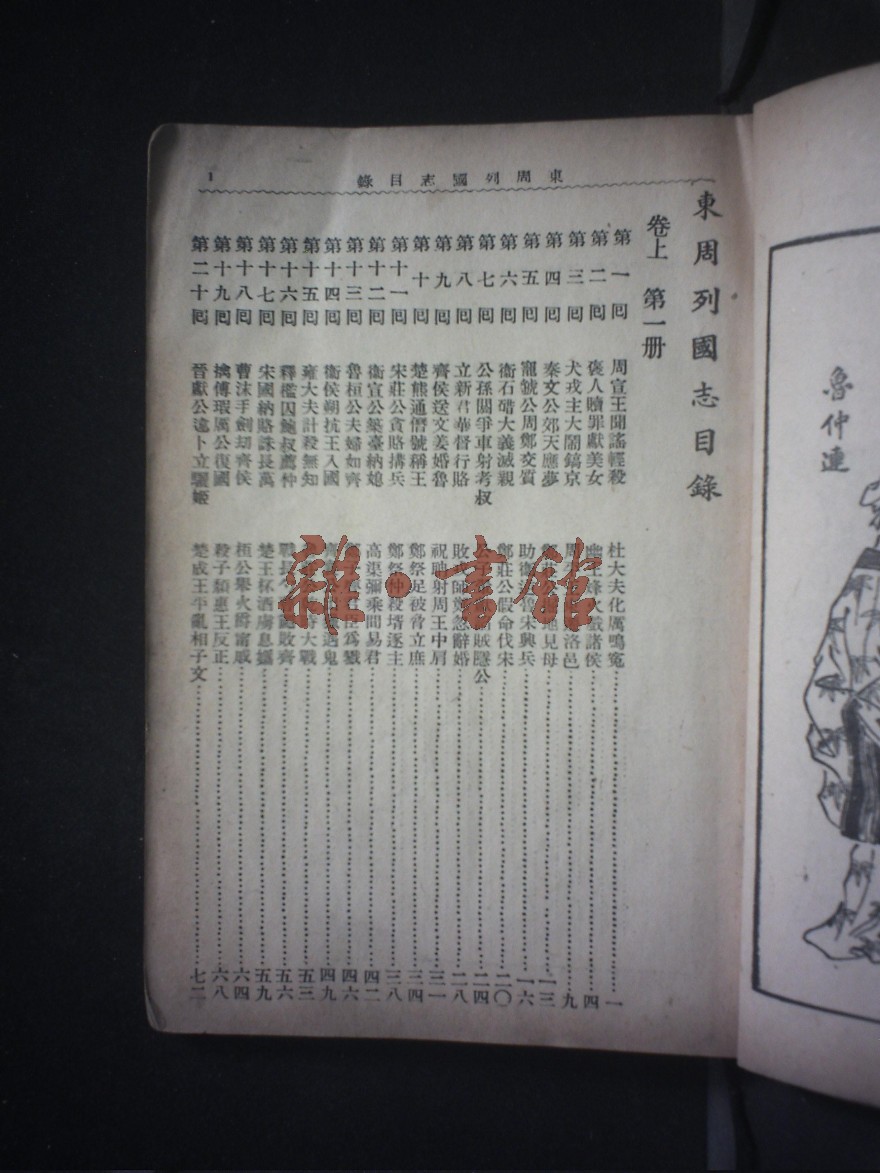 魯仲連
東周列國志目錄
1
東周列國志目錄
卷上 第一册
第一囘 周宣王聞謠輕殺 杜大夫化厲鳴寃 一
第二囘 褒人贖罪獻美女 幽王烽火戲諸侯 四
第三囘 犬戎主大鬧鎬京 周 洛邑 九
第四囘 秦文公郊天應夢 地見母 一三
第五囘 寵虢公周鄭交質 助衞 魯宋興兵 一六
第六囘 衞石碏大義滅親 鄭莊公假命伐宋 二〇
第七囘 公孫閼爭車射考叔 公子 賊隱公 二四
第八囘 立新君華督行賂 敗戎師鄭忽辭婚 二八
第九囘 齊侯送文姜婚魯 祝聃射周王中肩 三一
第十囘 楚熊通僭號稱王 鄭祭足被脅立庶 三四
第十一囘 宋莊公貪賂搆兵 鄭祭仲殺壻逐主 三八
第十二囘 衞宣公築臺納媳 高渠彌乘間易君 四二
第十三囘 魯桓公夫婦如齊 君臣爲戮 四六
第十四囘 衞侯朔抗王入國 遇鬼 四九
第十五囘 雍大夫計殺無知 大戰 五三
第十六囘 釋檻囚鮑叔薦仲 戰長 敗齊 五六
第十七囘 宋國納賂誅長萬 楚王杯酒虜息嬀 五九
第十八囘 曹沫手劍刧齊侯 桓公舉火爵甯戚 六四
第十九囘 擒傅瑕厲公復國 殺子頽惠王反正 六八
第二十囘 晉獻公違卜立驪姬 楚成王平亂相子文 七二
雜·書館